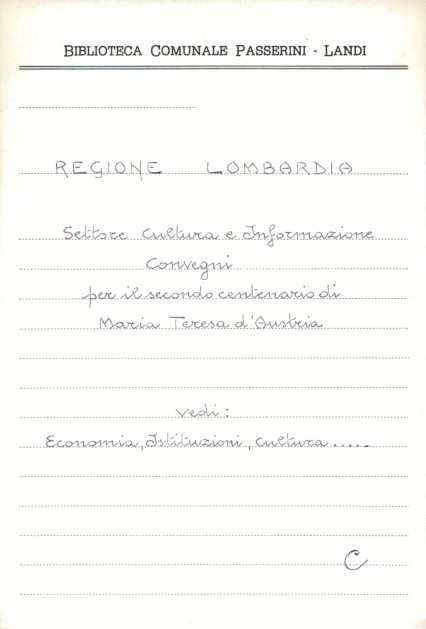 BIBLIOTECA COMUNALE PASSERINI - LANDI
REGIONE LOMBARDIA
Settore Cultura e Informazione
Convegni
per il secondo centenario di
Maria Teresa d'Austria
vedi:
Economia, Istituzioni, cultura.....
C